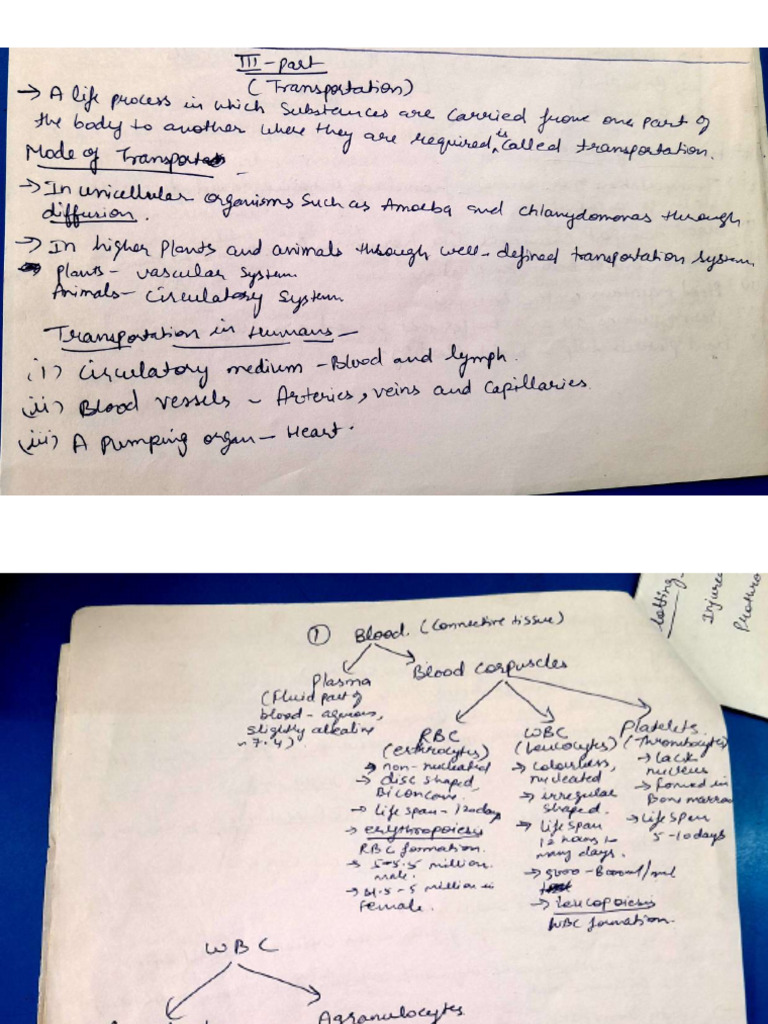 III-part
(Transportation)
→ A life process in which Substences are carried frome one part of
the body to another where they are required, is called transportation.
Mode of Transport -
→ In unicellular organisms Such as Amoeba and chlamydomonas through
diffusion.
→ In higher Plants and animals through well-defined transportation system
Plants - vascular System.
Animals - Circulatory System.
Transportation in Humans -
(i) Circulatory medium - Blood and lymph.
(ii) Blood vessels - Arteries, veins and Capillaries.
(iii) A Pumping organ - Heart.
lotting-
Injured
Prothro
① Blood. (Connective tissue)
Plasma
(Fluid part of
blood - aqueous,
slightly alkaline
~ 7.4)
Blood Corpuscles
RBC
(erthrocytes)
→ non-nucleated
→ disc shaped,
Biconcave.
→ life span - 120days
→ erythropoiesis
RBC formation.
→ 5-5.5 million
male.
→ 4.5-5 million in
Female.
WBC
(leucocytes)
→ Colourless,
nucleated
→ irregular
shaped.
→ life span
12 hours to
many days.
→ 5000-8000ml/ml
→ leucopoiesis
WBC formation.
Platelets
(Thrombocytes)
→ lack
nucleus
→ formed in
Bone marrow
→ life span
5-10days
WBC
Agranulocytes